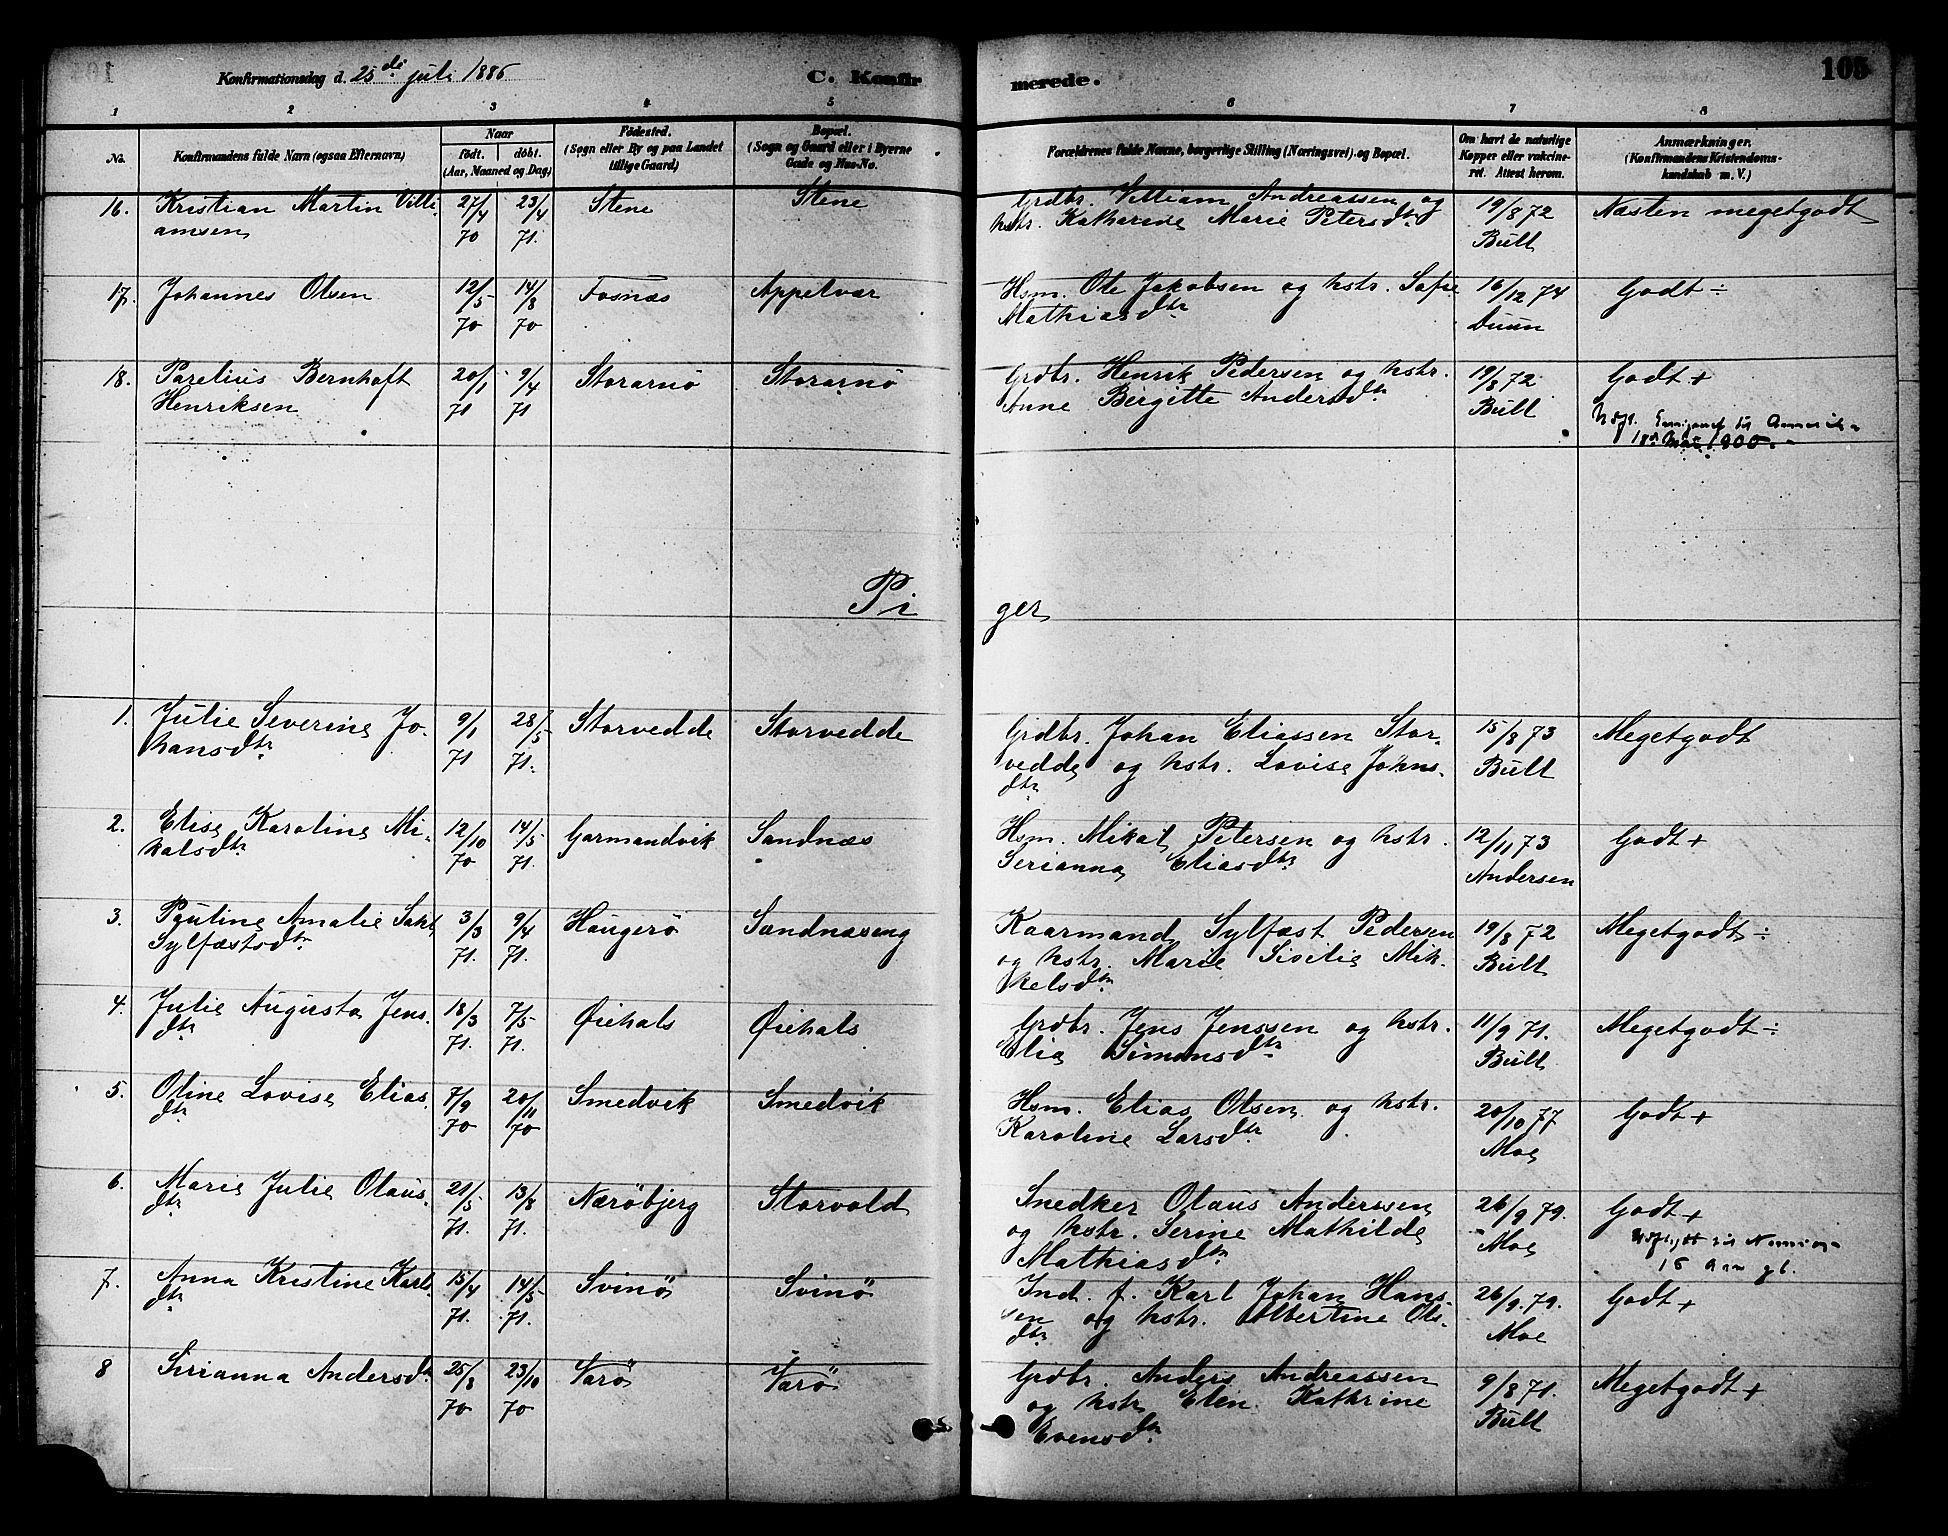 Konfirmationsdag d. 25de juli 1886 C. Konfirmerede. 105
1 2 3 4 5 6 7 8
No. Konfirmandens fulde Navn (ogsaa Efternavn) Naar født. døbt. (Aar, Maaned og Dag) Fødested. (Sogn eller By og paa Landet tillige Gaard) Bopæl. (Sogn og Gaard eller i Byerne Gade og Hus-No. Forældrenes fulde Navne, borgerlige Stilling (Næringsvei) og Bopæl. Om havt de naturlige Kopper eller vakcineret. Attest herom. Anmærkninger. (Konfirmandens Kristendomskundskab m. V.)
16. Kristian Martin Villi 27/4 23/4 Stene Stene Grdbr. Villiam Andreassen og 19/8 72 Næsten megetgodt
amsen 70 71. hstr. Katharine Marie Petersdtr Bull
17. Johannes Olsen 12/5 14/8 Fosnæs Appelvær Hsm. Ole Jakobsen og hstr. Sofie 16/12 74 Godt ÷
70 70 Mathiasdtr Duun
18. Parelius Bernhoft 20/1 9/4 Storarnø Storarnø Grdbr. Henrik Pedersen og hstr. 19/8 72 Godt +
Henriksen 71 71 Anne Birgitte Andersdtr Bull
til Amerika
1900.
Piger
1. Julie Severine Jo- 9/1 28/5 Storvedde Storvedde Grdbr. Johan Eliassen Stor- 15/8 73 Megetgodt
hansdtr 71 71. vedde og hstr. Lovise Johns- Bull
dtr
2. Elise Karoline Mi- 12/10 14/5 Garmandvik Sandnæs Hsm. Mikal Petersen og hstr. 12/11 73 Godt +
kalsdtr 70 71. Serianna Eliasdtr Andersen
3. Pauline Amalie 3/3 9/4 Haugerø Sandnæseng Kaarmand Sylfæst Pedersen 19/8 72 Megetgodt ÷
Sylfæstsdtr 71. 71. og hstr. Marie Sisilie Mik- Bull
kelsdtr
4. Julie Augusta Jens- 18/3 7/5 Øiehals Øiehals Grdbr. Jens Jenssen og hstr. 11/9 71. Megetgodt ÷
dtr 71. 71. Elia Simonsdtr Bull
5. Oline Lovise Elias- 7/9 20/11 Smedvik Smedvik Hsm. Elias Olsen og hstr. 20/10 77 Godt +
dtr 70 70 Karoline Larsdtr Moe
6. Marie Julie Olaus- 21/5 13/8 Nærøbjerg Storvold Snedker Olaus Anderssen 26/9 79. Godt +
dtr 71. 71. og hstr. Serine Mathilde Moe
Mathiasdtr 15 Aar gl.
7. Anna Kristine Karls- 15/4 14/5 Svinø Svinø Ind. f. Karl Johan Hans- 26/9. 79. Godt +
dtr 71. 71. sen og hstr. Albertine Ols- Moe
dtr
8 Sirianna Andersdtr 25/8 23/10 Varø Varø Grdbr. Anders Andreassen 9/8 71. Megetgodt +
70 70 og hstr Elen Kathrine Bull
Evensdtr